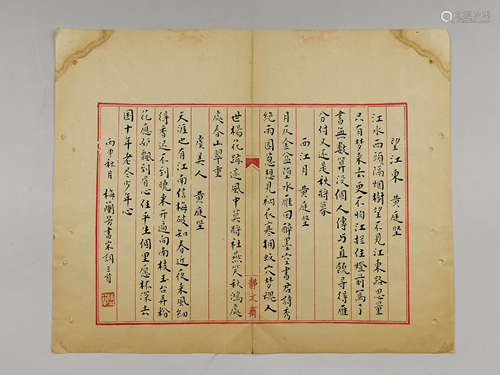 望江東 黄庭堅
江水西頭隔烟樹望不見江東路思量
只有夢來去更不怕江拦住燈前寫了
書無數算沒個人傳与直饒尋得雁
分付又还是秋將暮
西江月 黄庭堅
月仄金盆墮水雁回醉墨空書君詩秀
絕雨園葱想見衲衣寒擁蚁穴梦魂人
世楊花踪迹風中莫將社燕笑秋鴻處
處春山翠重
虞美人 黄庭堅
天涯也有江南信梅破知春近夜來風細
得香遲不到曉來開遍向南枝玉台弄粉
花應妒飄到眉心住平生個里愿杯深去
國十年老尽少年心
丙申秋月 梅蘭芳書宋詞三首
静文齋